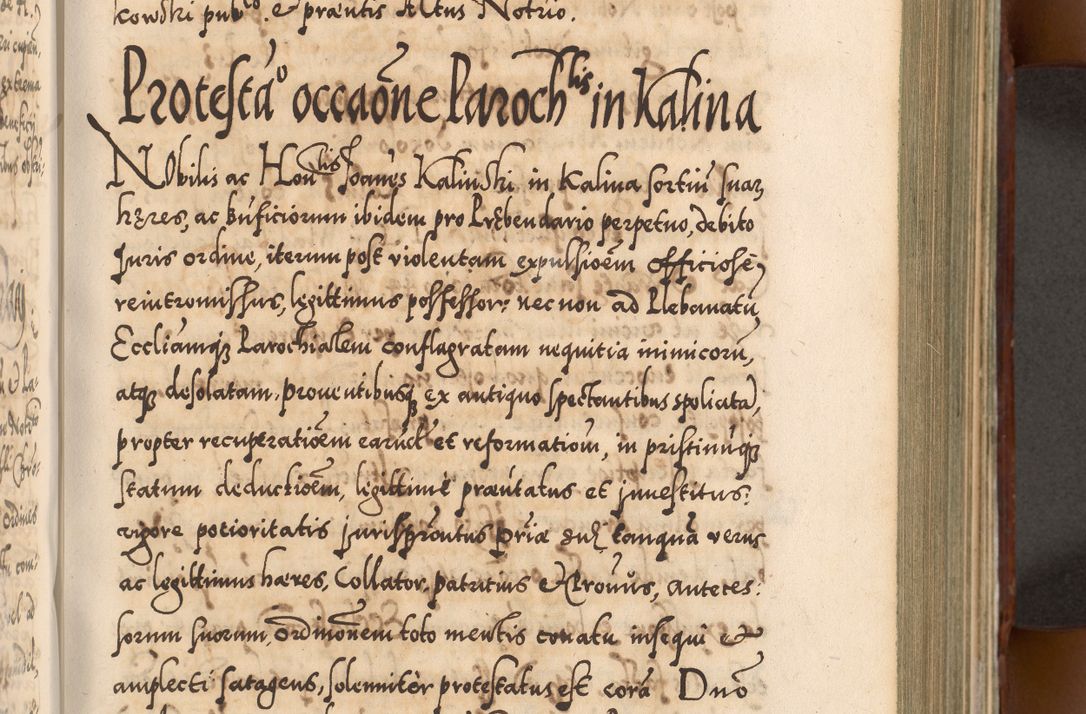 kowski pub^co. et præntis Actus Notrio.
Protestā^o occaōne Paroch^lis in Kalina
Nobilis ac Hon^lis Joanēs Kalinski in Kalina sortiū suarꝫ
hæres, ac būficiorum ibidem pro Præbendario perpetuo, debito
Juris ordine, iterum post violentam expulsioēm officiose,
reintromissus, legittimus possessor: necnon ad Plebanatū,
Eccliamqꝫ Parochialem conflagratam nequitia inimicorū,
atqꝫ desolatam, prouentibusqꝫ ex antiquo spectantibus spoliatā,
propter recuperatioēm earūd et reformatiom, in pristinūqꝫ
statum deductioēm, legittimè præūtatus et inuestitus:
vigore potioritatis jurisprōntus tanquā verus
ac legittimus hæres, Collator, patritius et Prouūs, anteces:
sorum suorum, ordinōnem toto mentis conatu insequi et
amplecti satagens, solemnitèr protestatus est corā Dnō